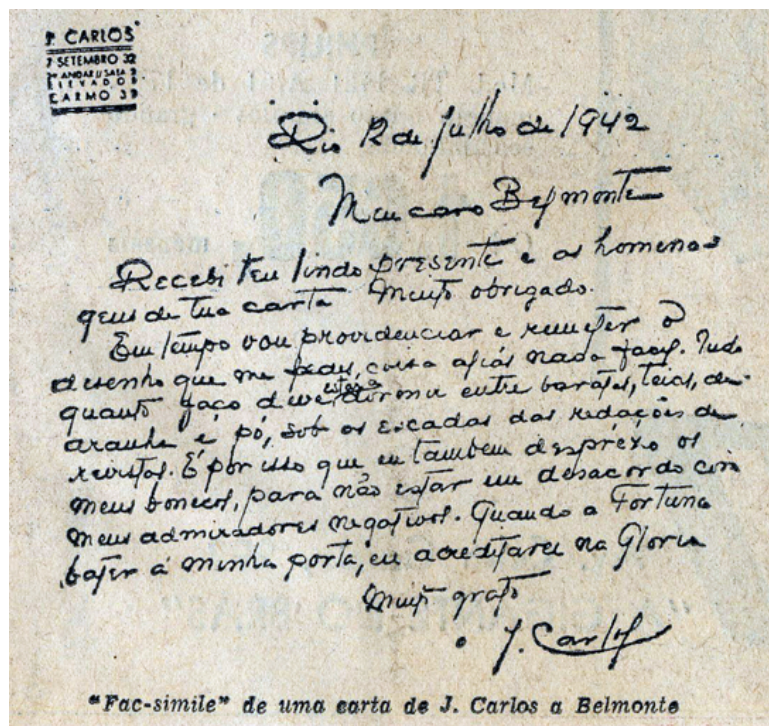 J. CARLOS
7 SETEMBRO 32
2º ANDAR SALA 2
ELEVADOR
CARMO 39
Rio 12 de Julho de 1942
Meu caro Belmonte
Recebi teu lindo presente e as homena-
gens de tua carta Muito obrigado.
Em tempo vou providenciar e remeter o
desenho que me pedes, coisa aliás nada facil. Tudo
quanto faço deve estar a dormir entre baratas, teias, de
aranha e pó, sob as escadas das redações de
revistas. É por isso que eu tambem desprézo os
meus bonecos, para não estar em desacordo com
meus admiradores negativos. Quando a Fortuna
bater á minha porta, eu acreditarei na Gloria
Muito grato
o J. Carlos
"Fac-simile" de uma carta de J. Carlos a Belmonte